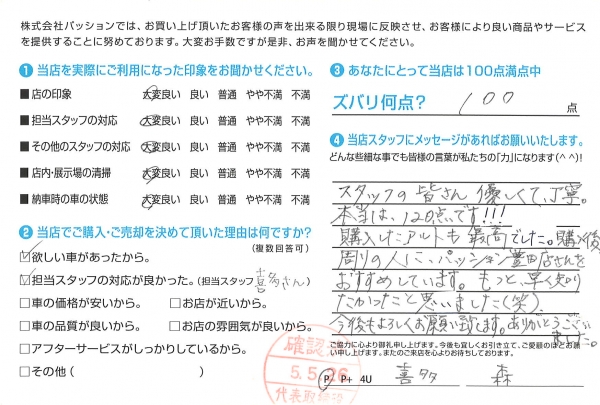 株式会社パッションでは、お買い上げ頂いたお客様の声を出来る限り現場に反映させ、お客様により良い商品やサービス
を提供することに努めております。大変お手数ですが是非、お声を聞かせてください。
❶ 当店を実際にご利用になった印象をお聞かせください。
■店の印象 大変良い 良い 普通 やや不満 不満
■担当スタッフの対応 大変良い 良い 普通 やや不満 不満
■その他のスタッフの対応 大変良い 良い 普通 やや不満 不満
■店内・展示場の清掃 大変良い 良い 普通 やや不満 不満
■納車時の車の状態 大変良い 良い 普通 やや不満 不満
❷ 当店でご購入・ご売却を決めて頂いた理由は何ですか?
(複数回答可)
☑欲しい車があったから。
☑担当スタッフの対応が良かった。(担当スタッフ 喜多さん)
□車の価格が安いから。 □お店が近いから。
□車の品質が良いから。 □お店の雰囲気が良いから。
□アフターサービスがしっかりしているから。
□その他 ( )
❸ あなたにとって当店は100点満点中
ズバリ何点? 100 点
❹ 当店スタッフにメッセージがあればお願いいたします。
どんな些細な事でも皆様の言葉が私たちの「力」になります(^^)!
スタッフの皆さん優しくて、丁寧。
本当は、120点です!!!
購入したアルトも最高でした。購入後、
周りの人に、パッション豊田店さんを
おすすめしています。もっと、早く知り
たかったと思いました(笑)
今後もよろしくお願い致します。ありがとうござい
ました。
ご協力に心より御礼申し上げます。今後も宜しくお引き立て、ご愛顧のほどお願い
申し上げます。またのご来店を心よりお待ちしております。
確認済
5.5.26
代表取締役
P P+ 4U 喜多 森